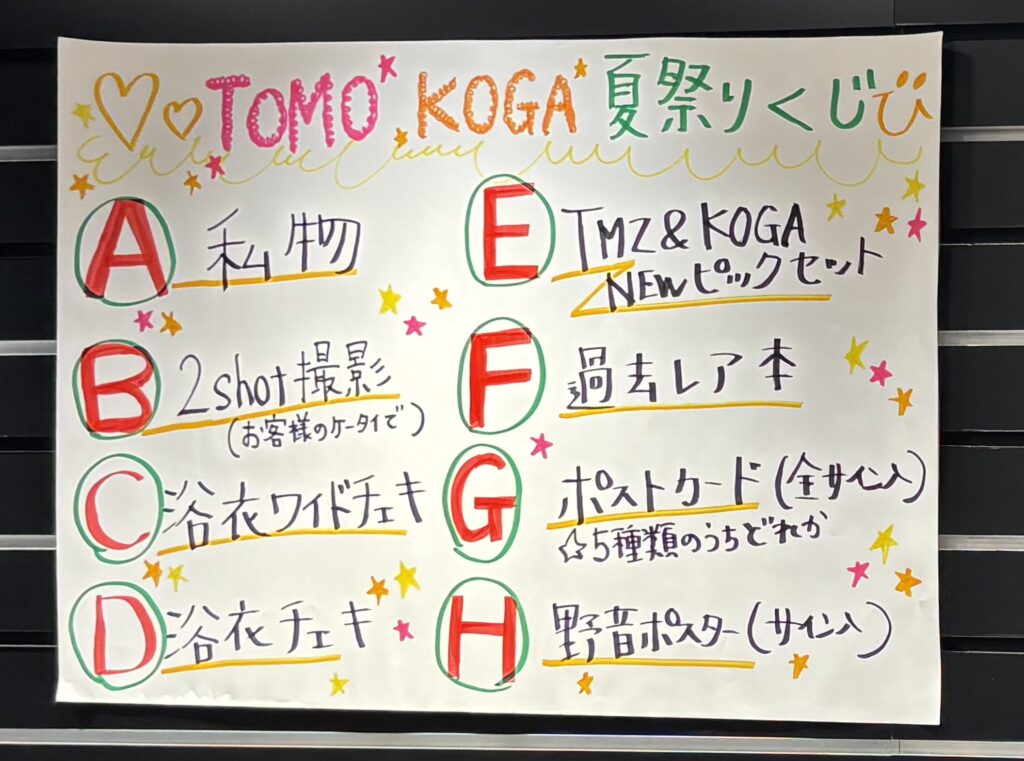 TOMO KOGA 夏祭りくじ
A 私物
B 2shot撮影
(お客様のケータイで)
C 浴衣ワイドチェキ
D 浴衣チェキ
E TMZ&KOGA
NEWピックセット
F 過去レア本
G ポストカード(全サイン入)
☆5種類のうちどれか
H 野音ポスター(サイン入)